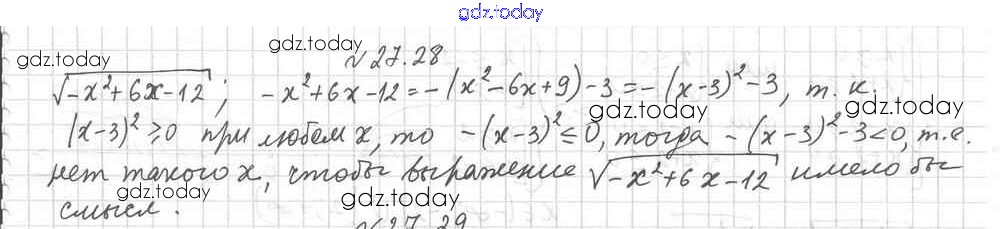 gdz.today
gdz.today gdz.today №27.28
√-x²+6x-12; -x²+6x-12=-(x²-6x+9)-3=-(x-3)²-3, т. к.
gdz.today
(x-3)²≥0 при любом x, то -(x-3)²≤0, тогда -(x-3)²-3<0, т.е.
gdz.today
нет такого x, чтобы выражение √-x²+6x-12 имело бы
gdz.today gdz.today
смысл.
№27.29